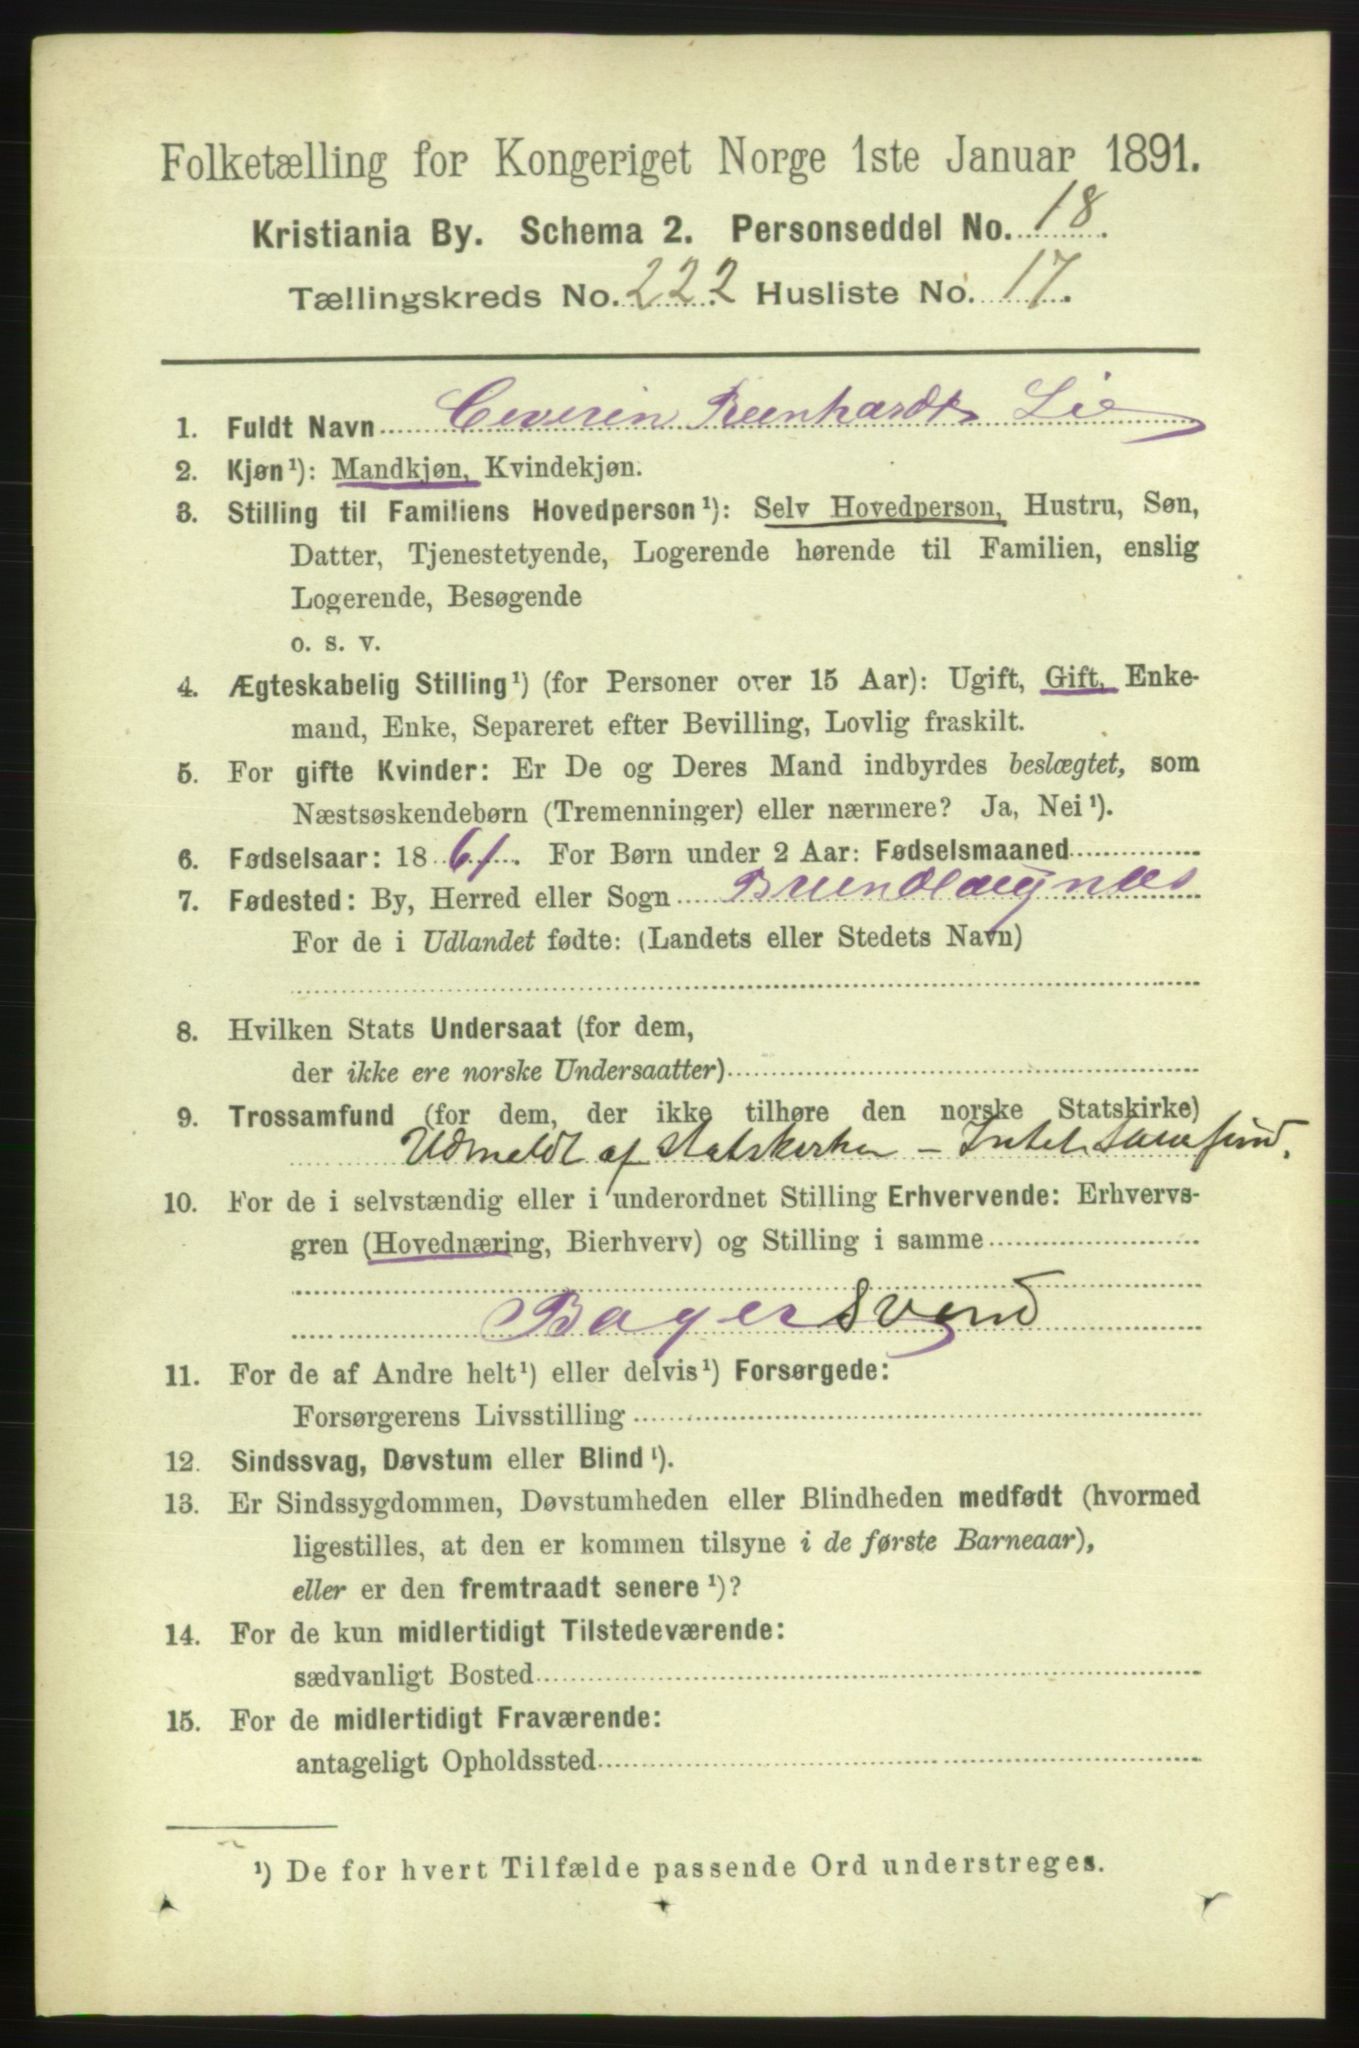 Folketælling for Kongeriget Norge 1ste Januar 1891.
Kristiania By. Schema 2. Personseddel No. 18.
Tællingskreds No. 222 Husliste No. 17.
1. Fuldt Navn Ceverin Reenhardt Lie
2. Kjøn¹): Mandkjøn, Kvindekjøn.
3. Stilling til Familiens Hovedperson¹): Selv Hovedperson, Hustru, Søn,
Datter, Tjenestetyende, Logerende hørende til Familien, enslig
Logerende, Besøgende
o. s. v.
4. Ægteskabelig Stilling¹) (for Personer over 15 Aar): Ugift, Gift, Enke-
mand, Enke, Separeret efter Bevilling, Lovlig fraskilt.
5. For gifte Kvinder: Er De og Deres Mand indbyrdes beslægtet, som
Næstsøskendebørn (Tremenninger) eller nærmere? Ja, Nei¹).
6. Fødselsaar: 1861. For Børn under 2 Aar: Fødselsmaaned
7. Fødested: By, Herred eller Sogn Brundlaugnæs
For de i Udlandet fødte: (Landets eller Stedets Navn)
8. Hvilken Stats Undersaat (for dem,
der ikke ere norske Undersaatter)
9. Trossamfund (for dem, der ikke tilhøre den norske Statskirke)
Udmeldt af statskirken – Intet Samfund.
10. For de i selvstændig eller i underordnet Stilling Erhvervende: Erhvervs-
gren (Hovednæring, Bierhverv) og Stilling i samme
Bager svend
11. For de af Andre helt¹) eller delvis¹) Forsørgede:
Forsørgerens Livsstilling
12. Sindssvag, Døvstum eller Blind¹).
13. Er Sindssygdommen, Døvstumheden eller Blindheden medfødt (hvormed
ligestilles, at den er kommen tilsyne i de første Barneaar),
eller er den fremtraadt senere¹)?
14. For de kun midlertidigt Tilstedeværende:
sædvanligt Bosted
15. For de midlertidigt Fraværende:
antageligt Opholdssted
¹) De for hvert Tilfælde passende Ord understreges.